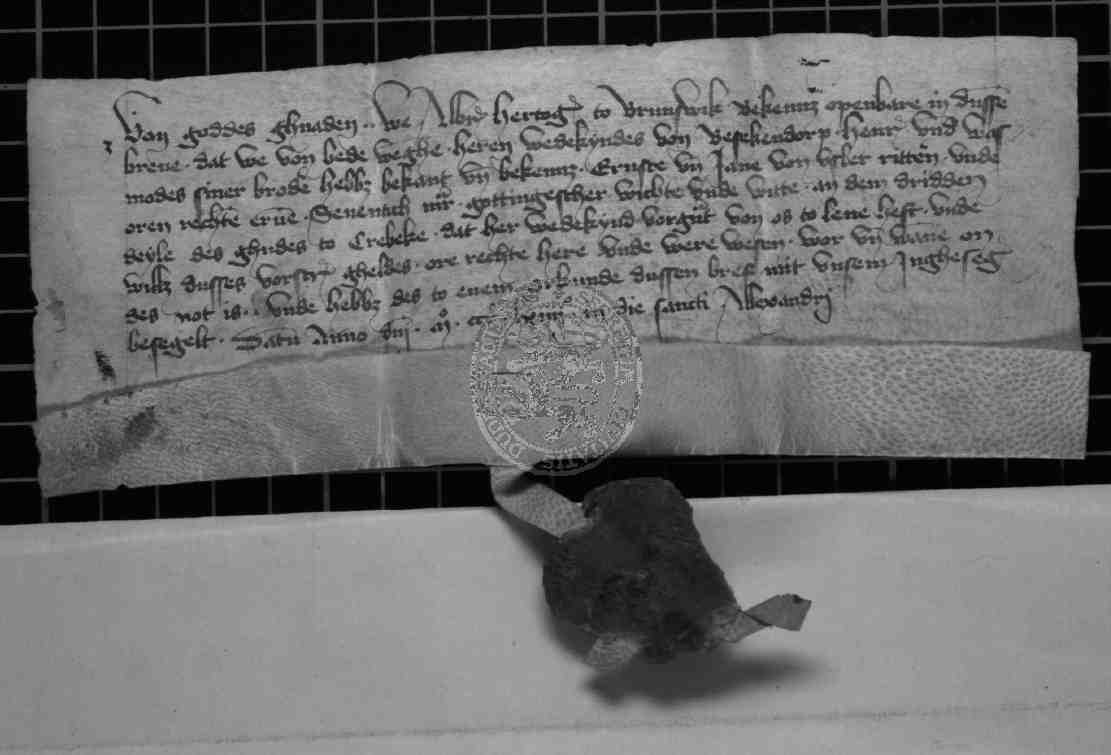 Van goddes ghnaden .. We Albr hertog to Brunswik bekennen openbare in dusse
breue . dat we von bede weghe . heren wedekyndes von Besekendorp . henr vnd was
modes siner brodere hebbz bekant vn bekennz . Ernste vn Jane von vsler rittern . vnde
oren rechte erue . Seuentich mr gottingescher wichte vnde witte . an dem dridden
deyle des ghudes to Crebeke . dat her wedekynd vorgut von os to lene heft . vnde
willz dusses vorscr gheldes . ore rechte here vnde were wesen . wor vn wane on
des not is .. vnde hebbz des to enem orkunde dussen bref mit vnsem Jngheseg
besegelt . Datu Anno dni . mo . in die sancti Allexandrj